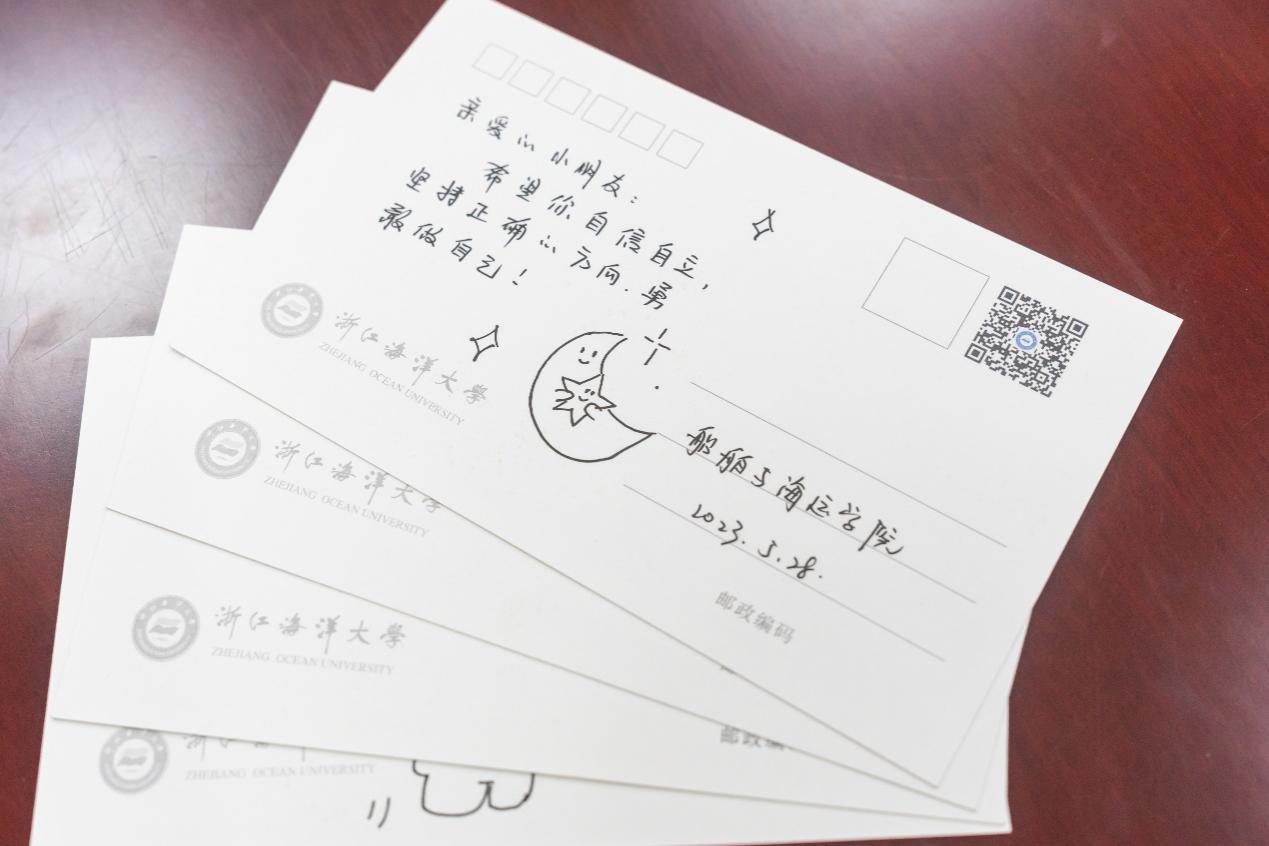 亲爱的小朋友：
希望你自信自立，
坚持正确的方向.勇
敢做自己！
浙江海洋大學
ZHEJIANG OCEAN UNIVERSITY
船舶与海运学院
2023.5.28.
邮政编码
浙江海洋大学
ZHEJIANG OCEAN UNIVERSITY
浙江海洋大學
ZHEJIANG OCEAN UNIVERSITY
邮政编
ZHEJIANG OCEAN UNIVERSITY